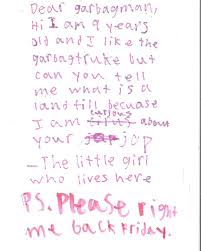 Dear garbagman,
Hi I am 9 years
old and I like the
garbagtruke but
can you tell
me what is a
landfill becuase
curious
I am about
your jop
The little girl
who lives here
P.S. Please right
me back Friday.